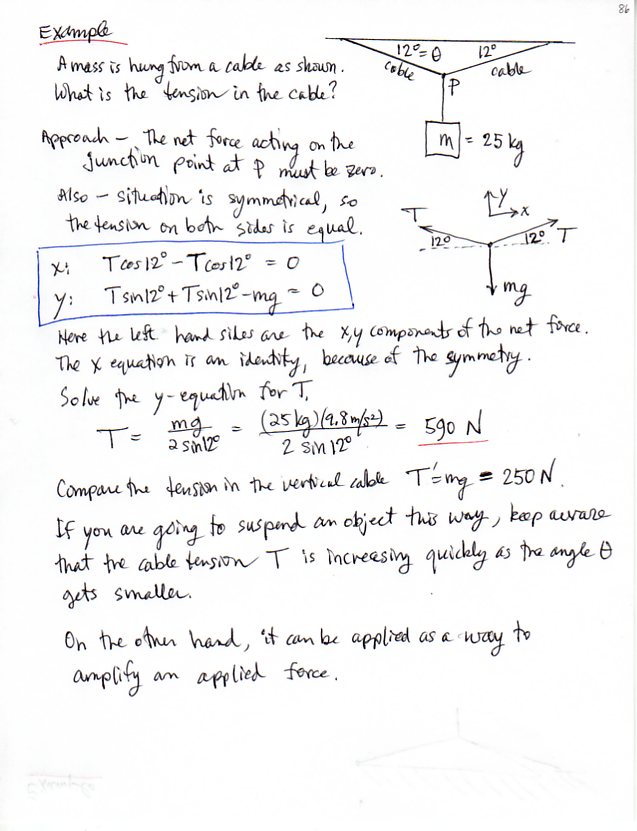 86
Example
A mass is hung from a cable as shown.
What is the tension in the cable?
12° = θ 12°
cable cable
P
m = 25 kg
Approach – The net force acting on the
junction point at P must be zero.
Also – situation is symmetrical, so
the tension on both sides is equal.
y
x
T T
12° 12°
mg
x: Tcos12° – Tcos12° = 0
y: Tsin12° + Tsin12° – mg = 0
Here the left hand sides are the x,y components of the net force.
The x equation is an identity, because of the symmetry.
Solve the y-equation for T,
T = mg / 2 sin12° = (25 kg)(9.8 m/s²) / 2 sin 12° = 590 N
Compare the tension in the vertical cable T' = mg = 250 N.
If you are going to suspend an object this way, keep aware
that the cable tension T is increasing quickly as the angle θ
gets smaller.
On the other hand, it can be applied as a way to
amplify an applied force.